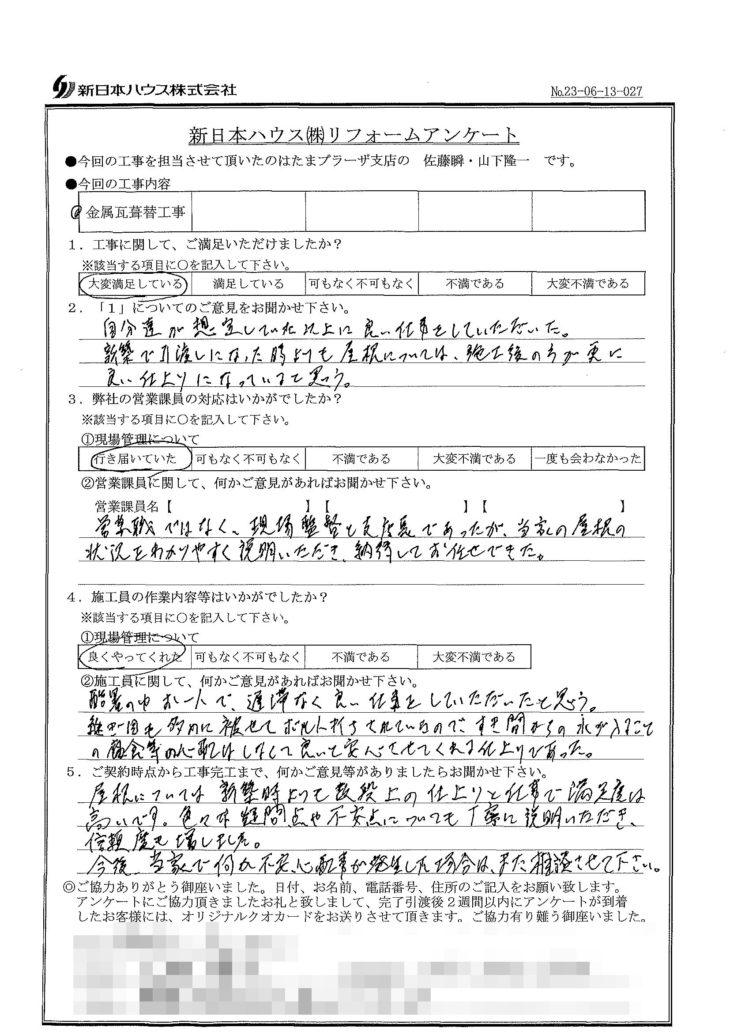 新日本ハウス株式会社
No.23-06-13-027
新日本ハウス㈱リフォームアンケート
●今回の工事を担当させて頂いたのはたまプラーザ支店の 佐藤瞬・山下隆一 です。
●今回の工事内容
金属瓦葺替工事
1．工事に関して、ご満足いただけましたか？
※該当する項目に○を記入して下さい。
大変満足している 満足している 可もなく不可もなく 不満である 大変不満である
2．「1」についてのご意見をお聞かせ下さい。
自分達が想定していた以上に良い仕事をしていただいた。
新築で引渡しになった時よりも屋根については、施工後の方が更に
良い仕上りになっていると思う。
3．弊社の営業課員の対応はいかがでしたか？
※該当する項目に○を記入して下さい。
①現場管理について
行き届いていた 可もなく不可もなく 不満である 大変不満である 一度も会わなかった
②営業課員に関して、何かご意見があればお聞かせ下さい。
営業課員名【 】【 】【 】
営業職ではなく、現場監督と支店長であったが、当家の屋根の
状況をわかりやすく説明いただき、納得してお任せできた。
4．施工員の作業内容等はいかがでしたか？
※該当する項目に○を記入して下さい。
①現場管理について
良くやってくれた 可もなく不可もなく 不満である 大変不満である
②施工員に関して、何かご意見があればお聞かせ下さい。
酷暑の中お一人で、遅滞なく良い仕事をしていただいたと思う。
も多めに被せてボルト打ちされているので、すき間からの水が入ること
の腐食等の心配はしなくて良いと安心させてくれる仕上りであった。
5．ご契約時点から工事完工まで、何かご意見等がありましたらお聞かせ下さい。
屋根については新築時よりも数段上の仕上りと仕事で満足度は
高いです。色々な疑問点や不安点についても丁寧に説明いただき、
信頼度も増しました。
今後、当家で何か不安、心配事が発生した場合は、また相談させて下さい。
◎ご協力ありがとう御座いました。日付、お名前、電話番号、住所のご記入をお願い致します。
アンケートにご協力頂きましたお礼と致しまして、完了引渡後2週間以内にアンケートが到着
したお客様には、オリジナルクオカードをお送りさせて頂きます。ご協力有り難う御座いました。